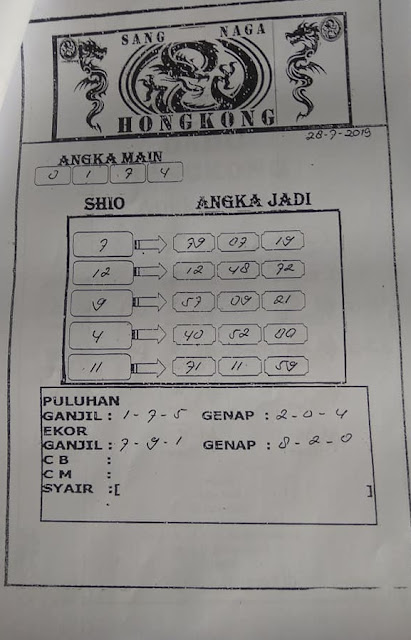 SANG NAGA
HONGKONG
28-7-2019
ANGKA MAIN
0 1 7 4
SHIO ANGKA JADI
7 79 07 19
12 12 48 72
9 57 09 21
4 40 52 00
11 71 11 59
PULUHAN
GANJIL : 1-7-5 GENAP : 2-0-4
EKOR
GANJIL : 7-9-1 GENAP : 8-2-0
C B :
C M :
SYAIR :[ ]